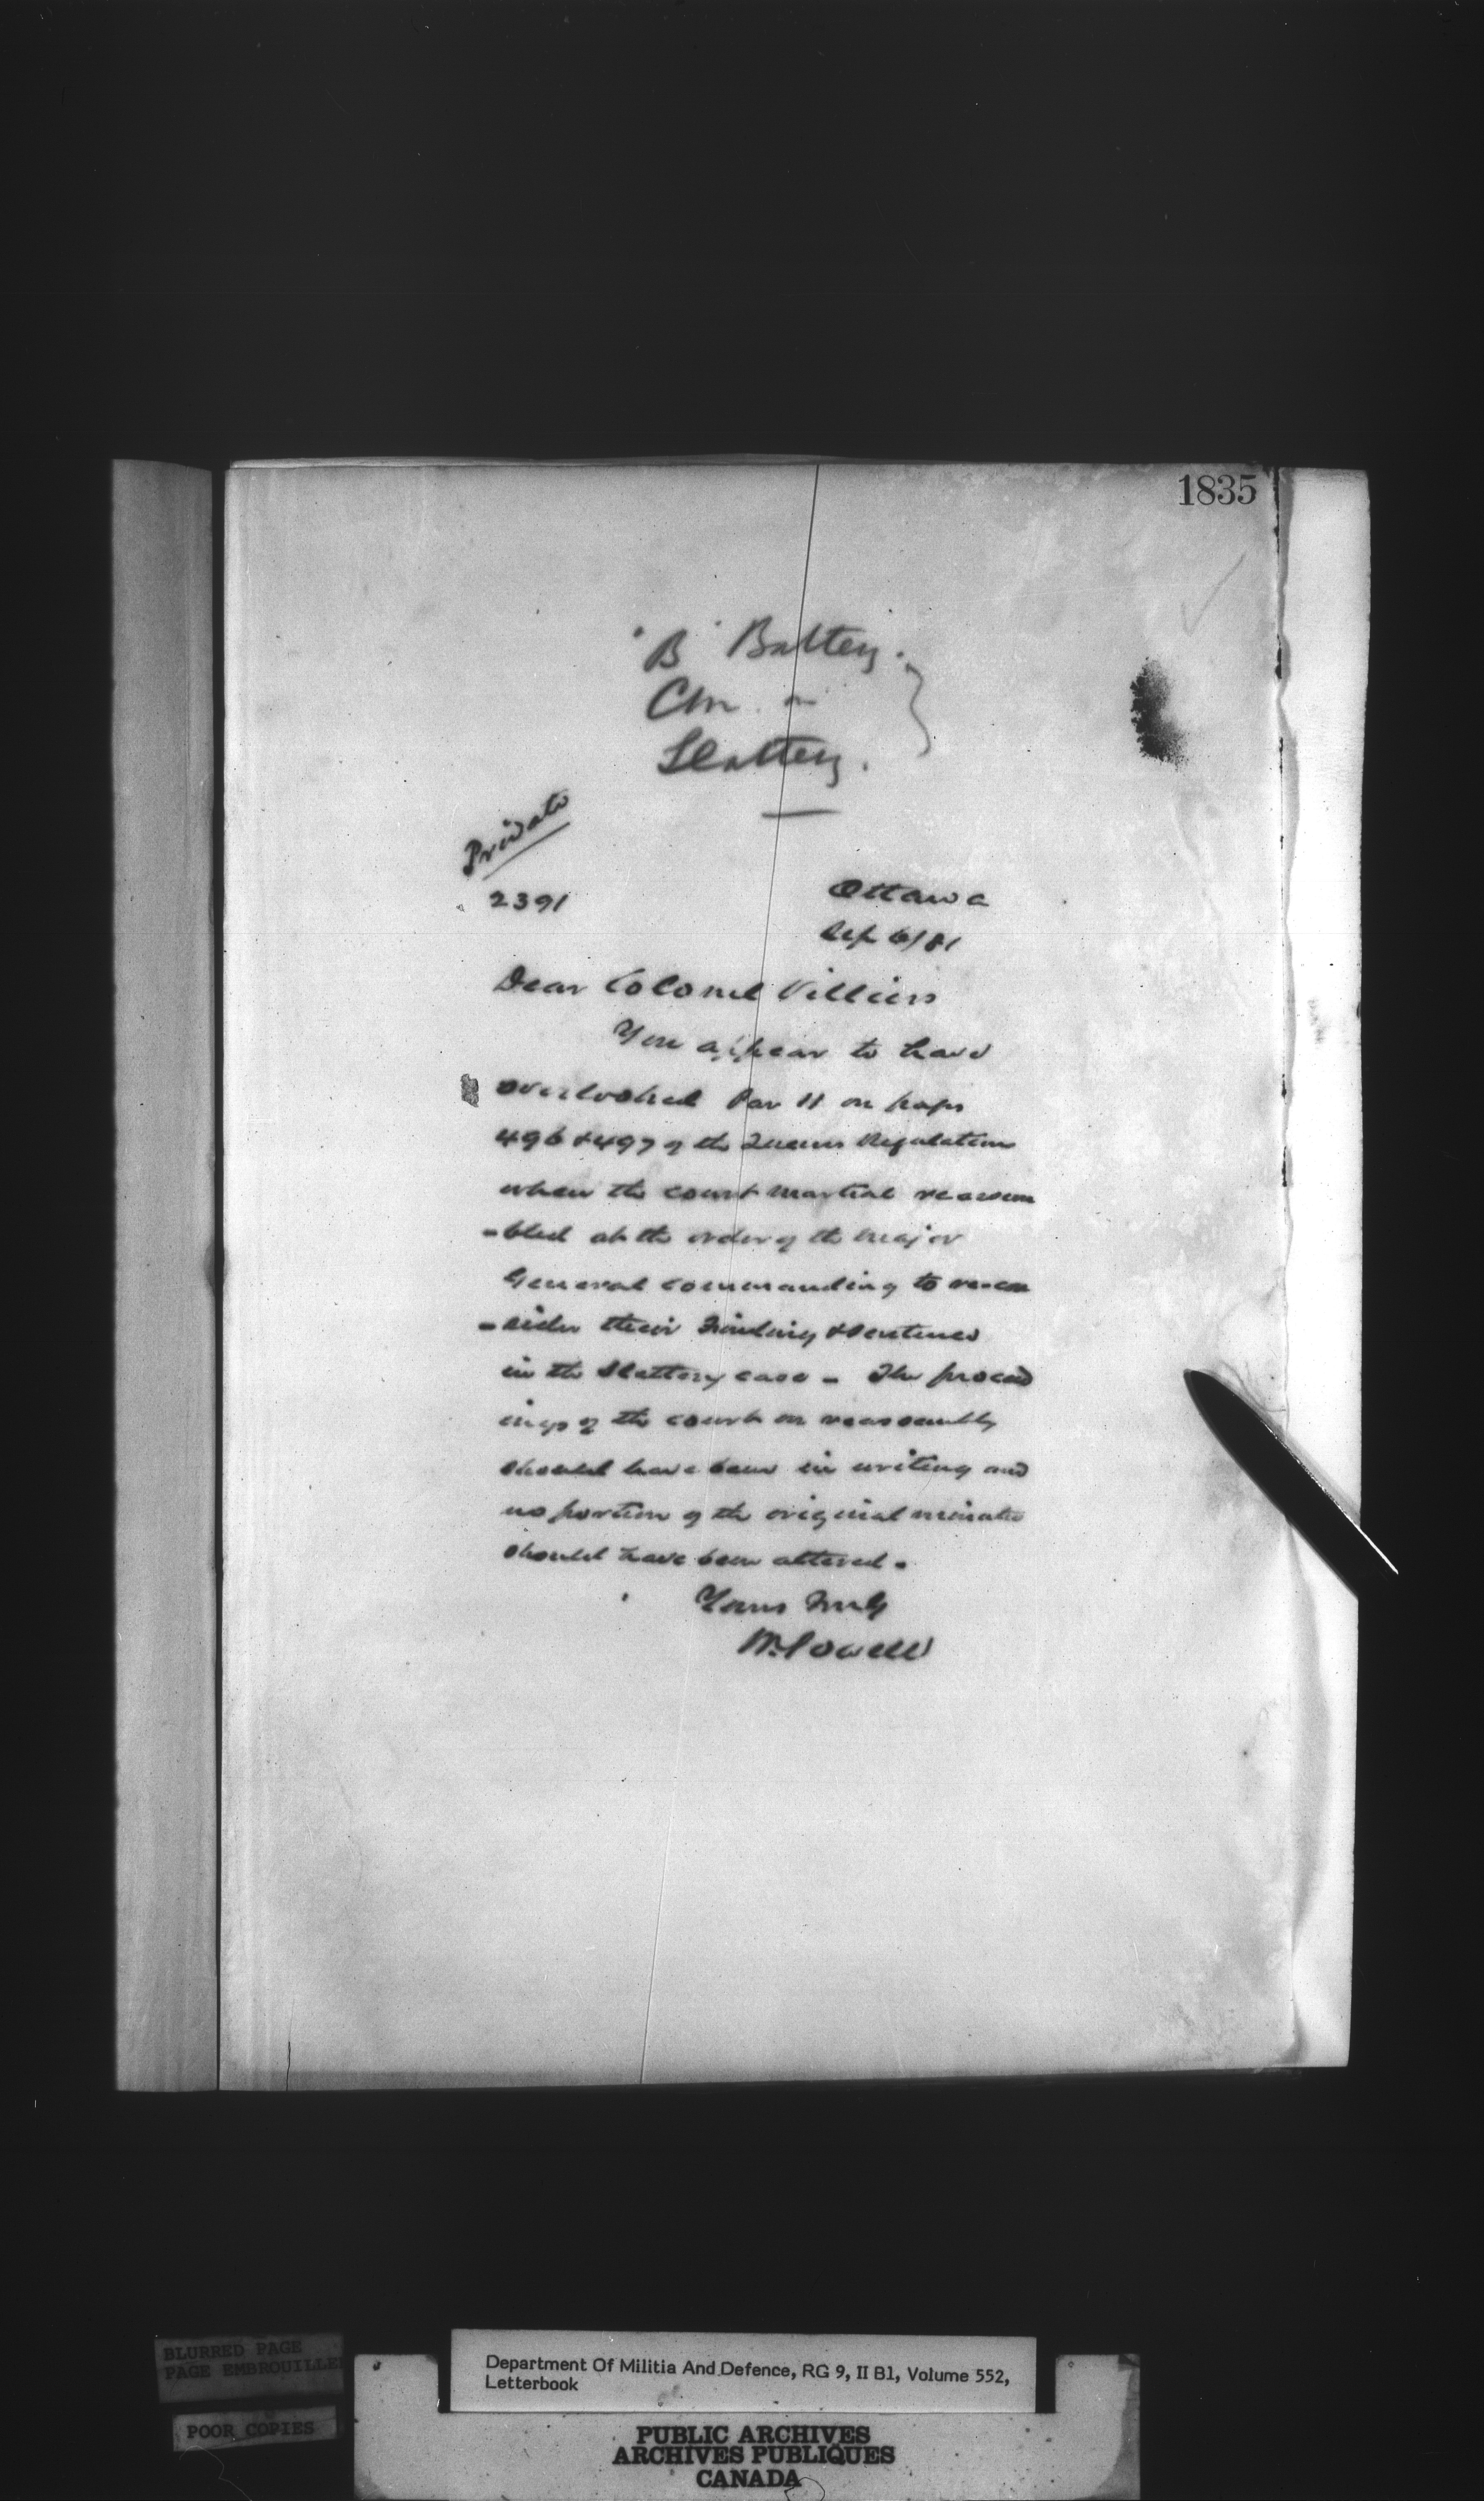 1835
"B" Battery.
CM on
Slattery.
Private
2391
Ottawa
Sep 6/81
Dear Colonel Villiers
You appear to have
overlooked Par 11 on pages
496 & 497 of the Queens Regulations
when the court martial reassem
-bled at the order of the Major
General commanding to re-con
-sider their Finding & Sentence
in the Slattery case - The proceed
ings of the court on reassembly
should have been in writing and
no portion of the original minutes
should have been altered.
Yours truly
W. Powell
BLURRED PAGE
PAGE EMBROUILLEE
POOR COPIES
Department Of Militia And Defence, RG 9, II B1, Volume 552,
Letterbook
PUBLIC ARCHIVES
ARCHIVES PUBLIQUES
CANADA